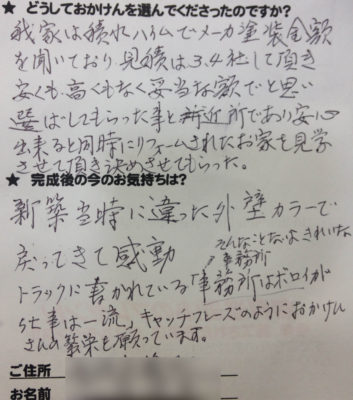 ★ どうしておかけんを選んでくださったのですか?
我家は積水ハイムでメーカ塗装金額
を聞いており 見積は3.4社して頂き
安くも、高くもなく妥当な額でと思い
選ばしてもらった事と 近所であり安心
出来ると同時にリフォームされたお家を見学
させて頂き決めさせてもらった。
★ 完成後の今のお気持ちは?
新築当時に違った外壁カラーで
戻ってきて感動
そんなことないよきれいな
事務所
トラックに書かれている「事務所はボロイが
仕事は一流」キャッチフレーズのようにおかけん
さんの繁栄を願っています。
ご住所
お名前